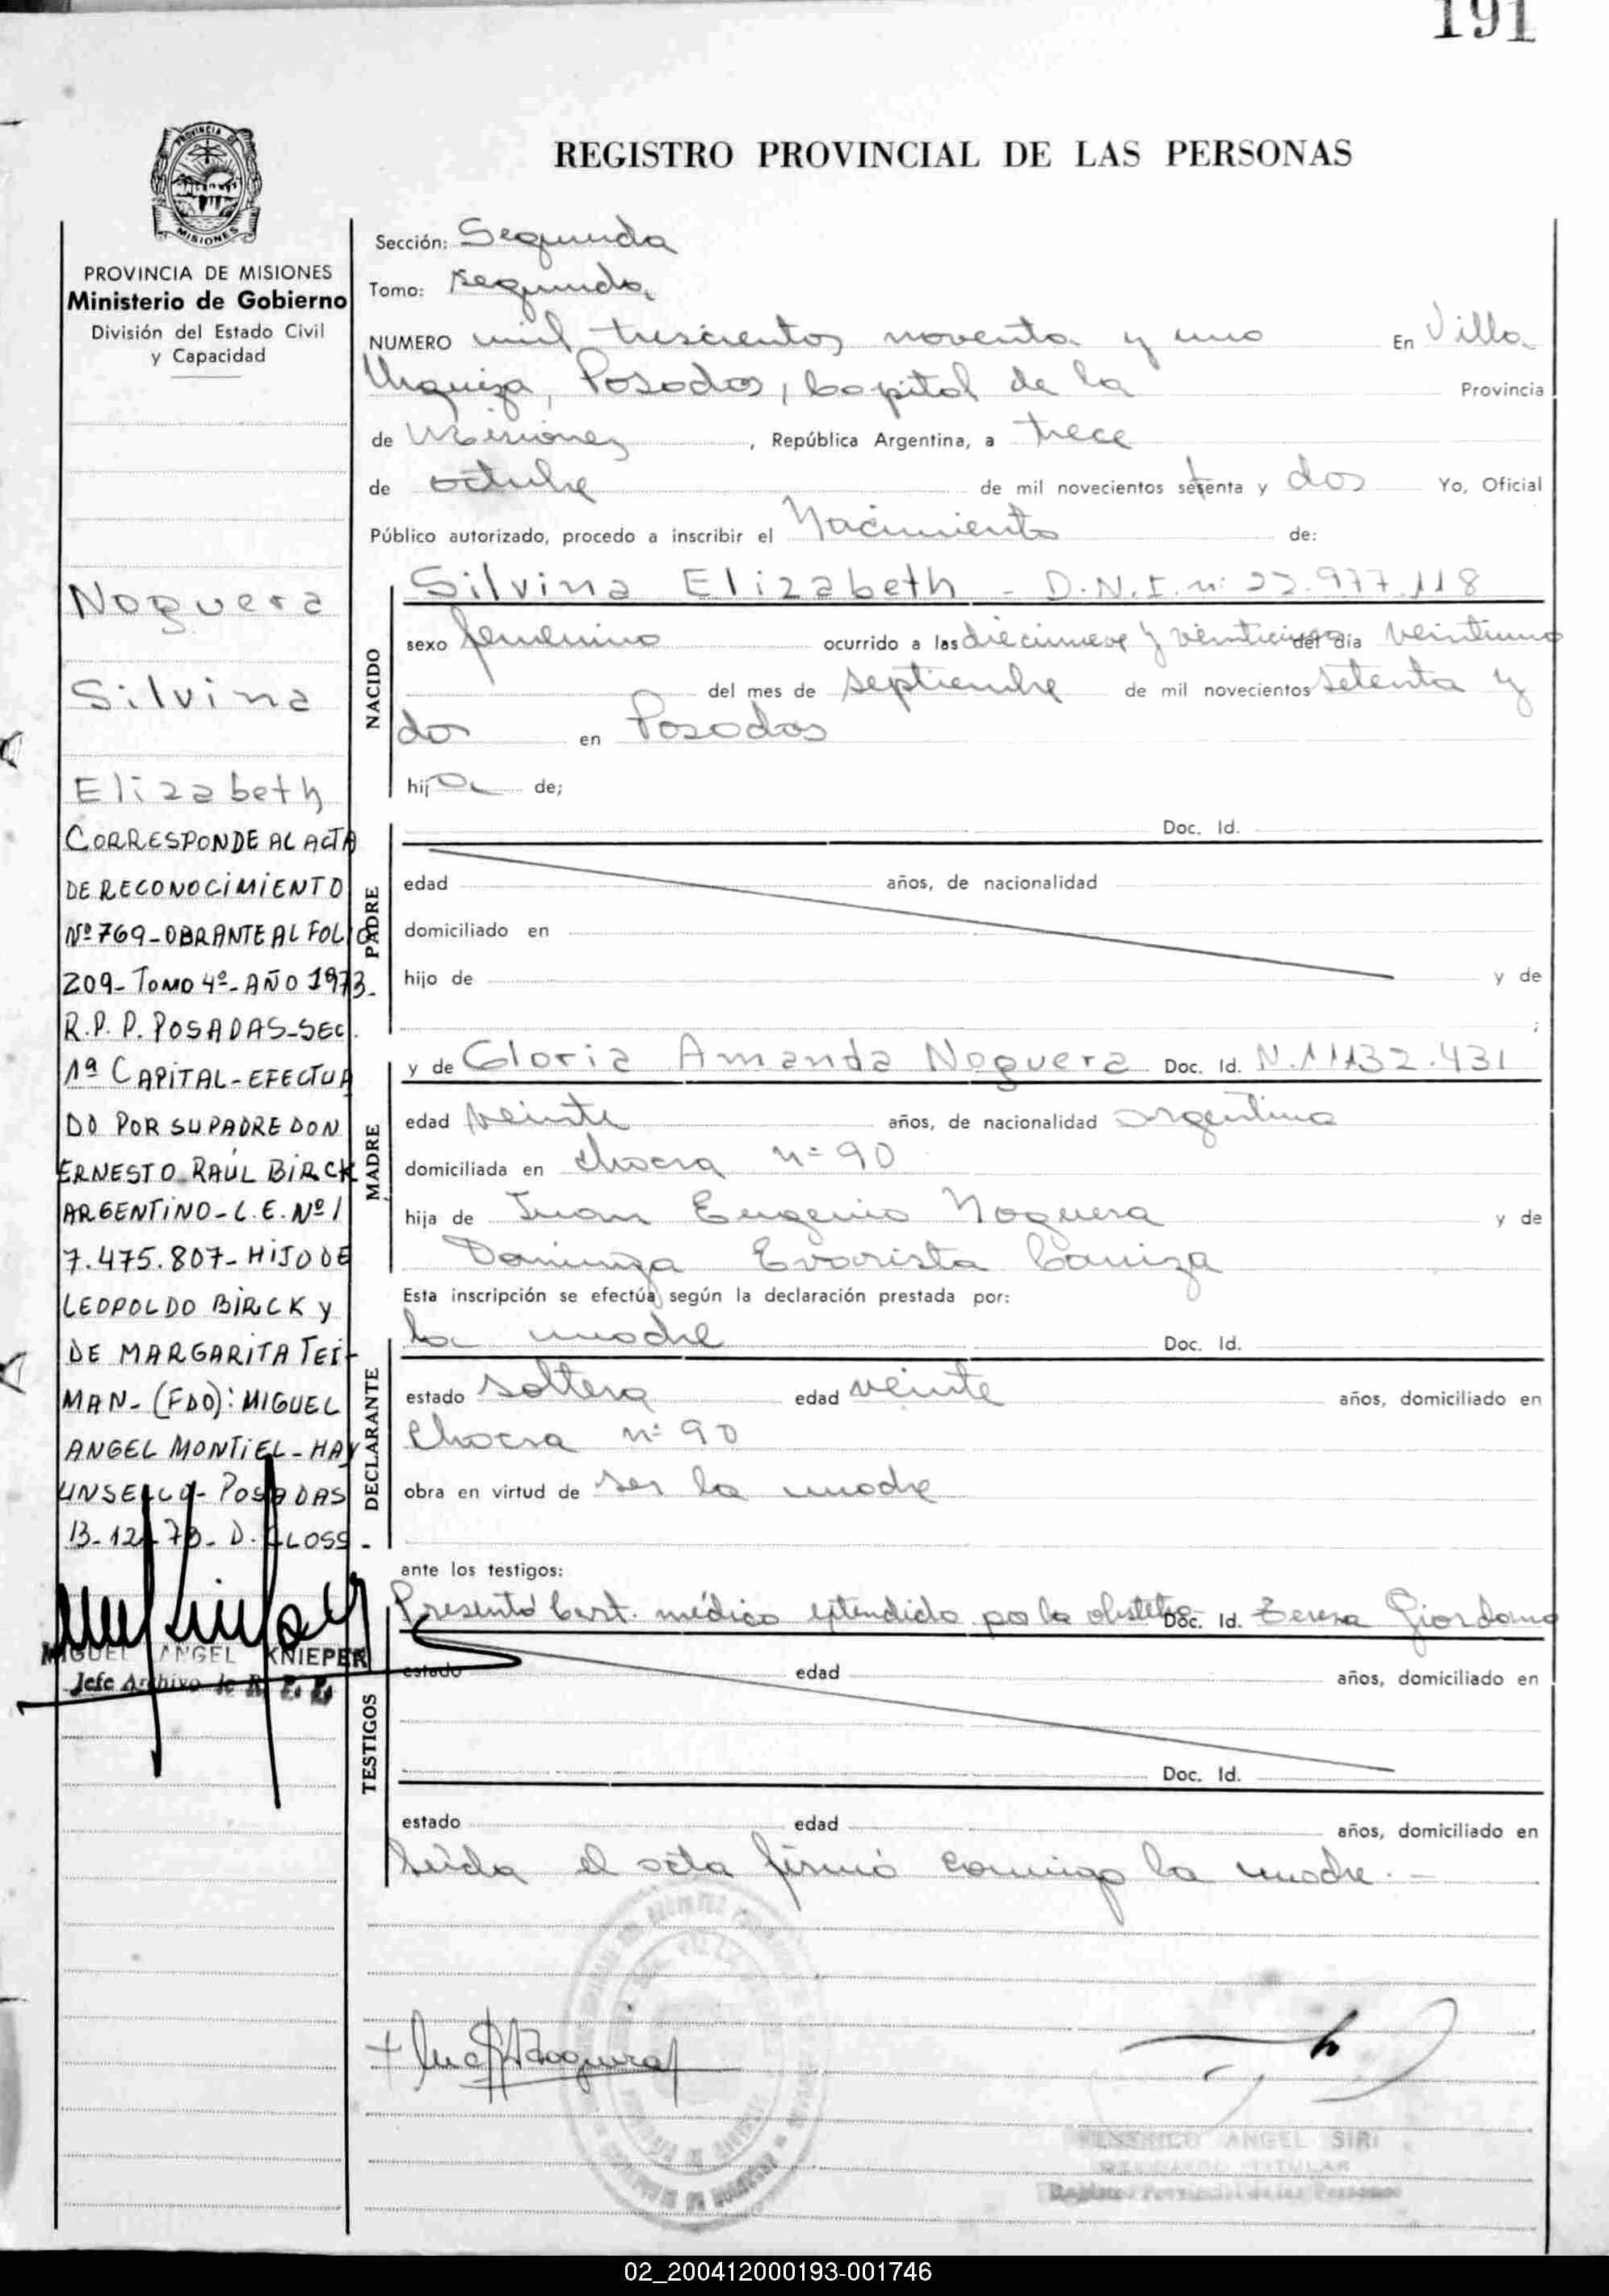 191
REGISTRO PROVINCIAL DE LAS PERSONAS
PROVINCIA DE
MISIONES
PROVINCIA DE MISIONES
Ministerio de Gobierno
División del Estado Civil
y Capacidad
Noguera
Silvina
Elizabeth
CORRESPONDE AL ACTA
DE RECONOCIMIENTO
Nº 769-OBRANTE AL FOLIO
209-TOMO 4º-AÑO 1973-
R.P.P. POSADAS-SEC.
1ª CAPITAL-EFECTUA
DO POR SU PADRE DON
ERNESTO RAÚL BIRCK
ARGENTINO-L.E. Nº/
7.475.807-HIJO DE
LEOPOLDO BIRCK y
DE MARGARITA TEI-
MAN-(FDO): MIGUEL
ANGEL MONTIEL-HAY
UN SELLO-POSADAS
13-12-73-D. CLOSS-
MIGUEL ANGEL KNIEPER
Jefe Archivo de R. P. P.
Sección: Segunda
Tomo: segundo
NUMERO mil trescientos noventa y uno En Villa
Urquiza, Posadas, Capital de la Provincia
de Misiones, República Argentina, a trece
de octubre de mil novecientos setenta y dos Yo, Oficial
Público autorizado, procedo a inscribir el Nacimiento de:
NACIDO
Silvina Elizabeth - D.N.I. nº 22.977.118
sexo femenino ocurrido a las diecinueve y veinticinco del día veintiuno
del mes de septiembre de mil novecientos setenta y
dos en Posadas
hija de;
PADRE
Doc. Id.
edad años, de nacionalidad
domiciliado en
hijo de y de
;
MADRE
y de Gloria Amanda Noguera Doc. Id. N. 11132.431
edad veinte años, de nacionalidad argentina
domiciliada en chacra nº 90
hija de Juan Eugenio Noguera y de
Dominga Evarista Caniza
Esta inscripción se efectúa según la declaración prestada por:
DECLARANTE
la madre Doc. Id.
estado soltera edad veinte años, domiciliado en
chacra nº 90
obra en virtud de ser la madre
ante los testigos:
TESTIGOS
Presentó Cert. médico extendido por la obstetra Doc. Id. Teresa Giordano
estado edad años, domiciliado en
Doc. Id.
estado edad años, domiciliado en
Leída el acta firmó conmigo la madre.-
ANGEL SIRI
TITULAR
Registro Provincial de las Personas
02_200412000193-001746